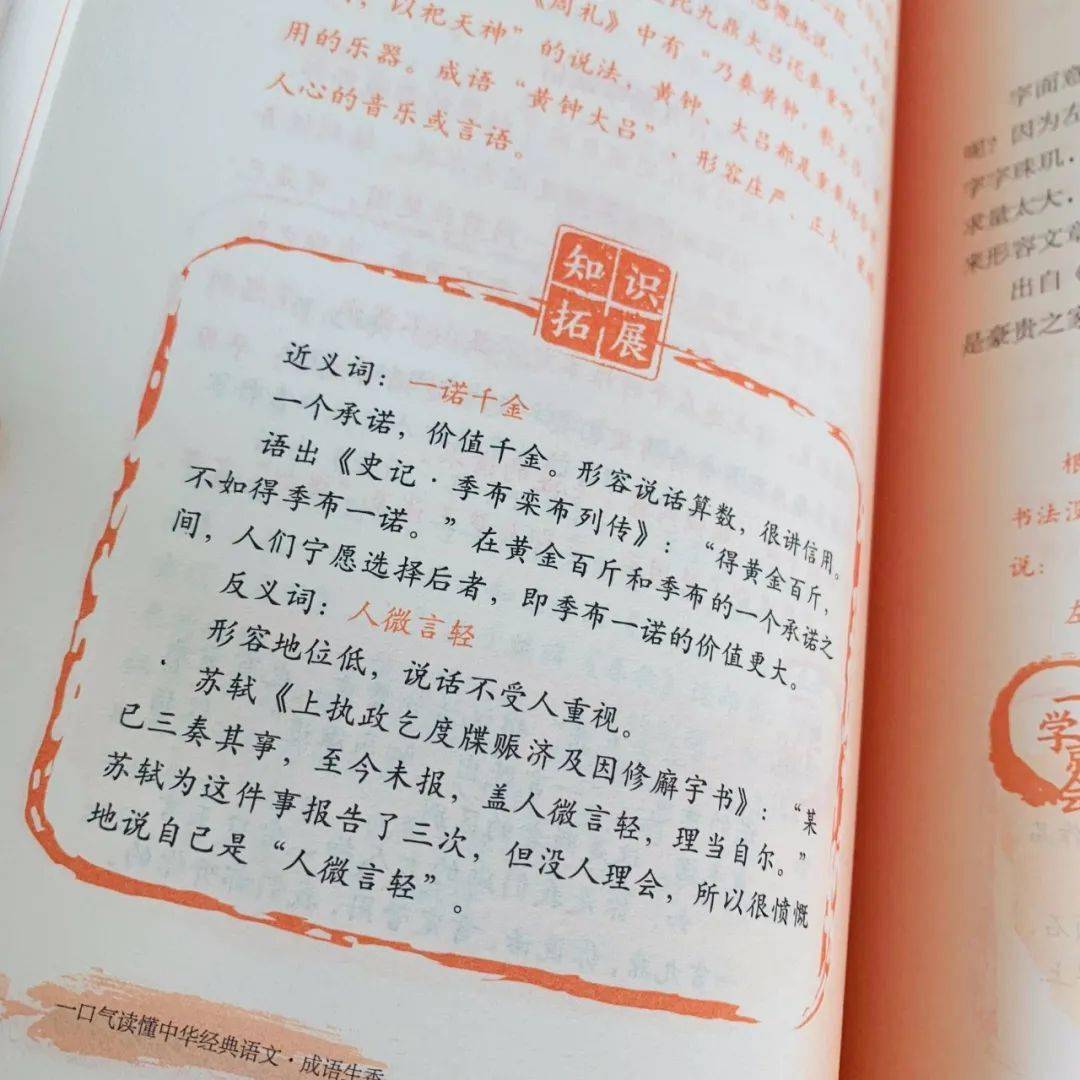 用的乐器。成语“黄钟大吕”，形容庄严、正大、
，以祀天神”的说法，黄钟、大吕都是重要场合
人心的音乐或言语。
知识
拓展
近义词：一诺千金
一个承诺，价值千金。形容说话算数，很讲信用。
语出《史记·季布栾布列传》：“得黄金百斤，
不如得季布一诺。”在黄金百斤和季布的一个承诺之
间，人们宁愿选择后者，即季布一诺的价值更大。
反义词：人微言轻
形容地位低，说话不受人重视。
苏轼《上执政乞度牒赈济及因修廨宇书》：“某
已三奏其事，至今未报，盖人微言轻，理当自尔。”
苏轼为这件事报告了三次，但没人理会，所以很愤慨
地说自己是“人微言轻”。
一口气读懂中华经典语文·成语生香
字面意
呢？因为左
字字珠玑
求量太大
来形容文章
出自《
是豪贵之家
根
书法没
说：
左
一
学
会